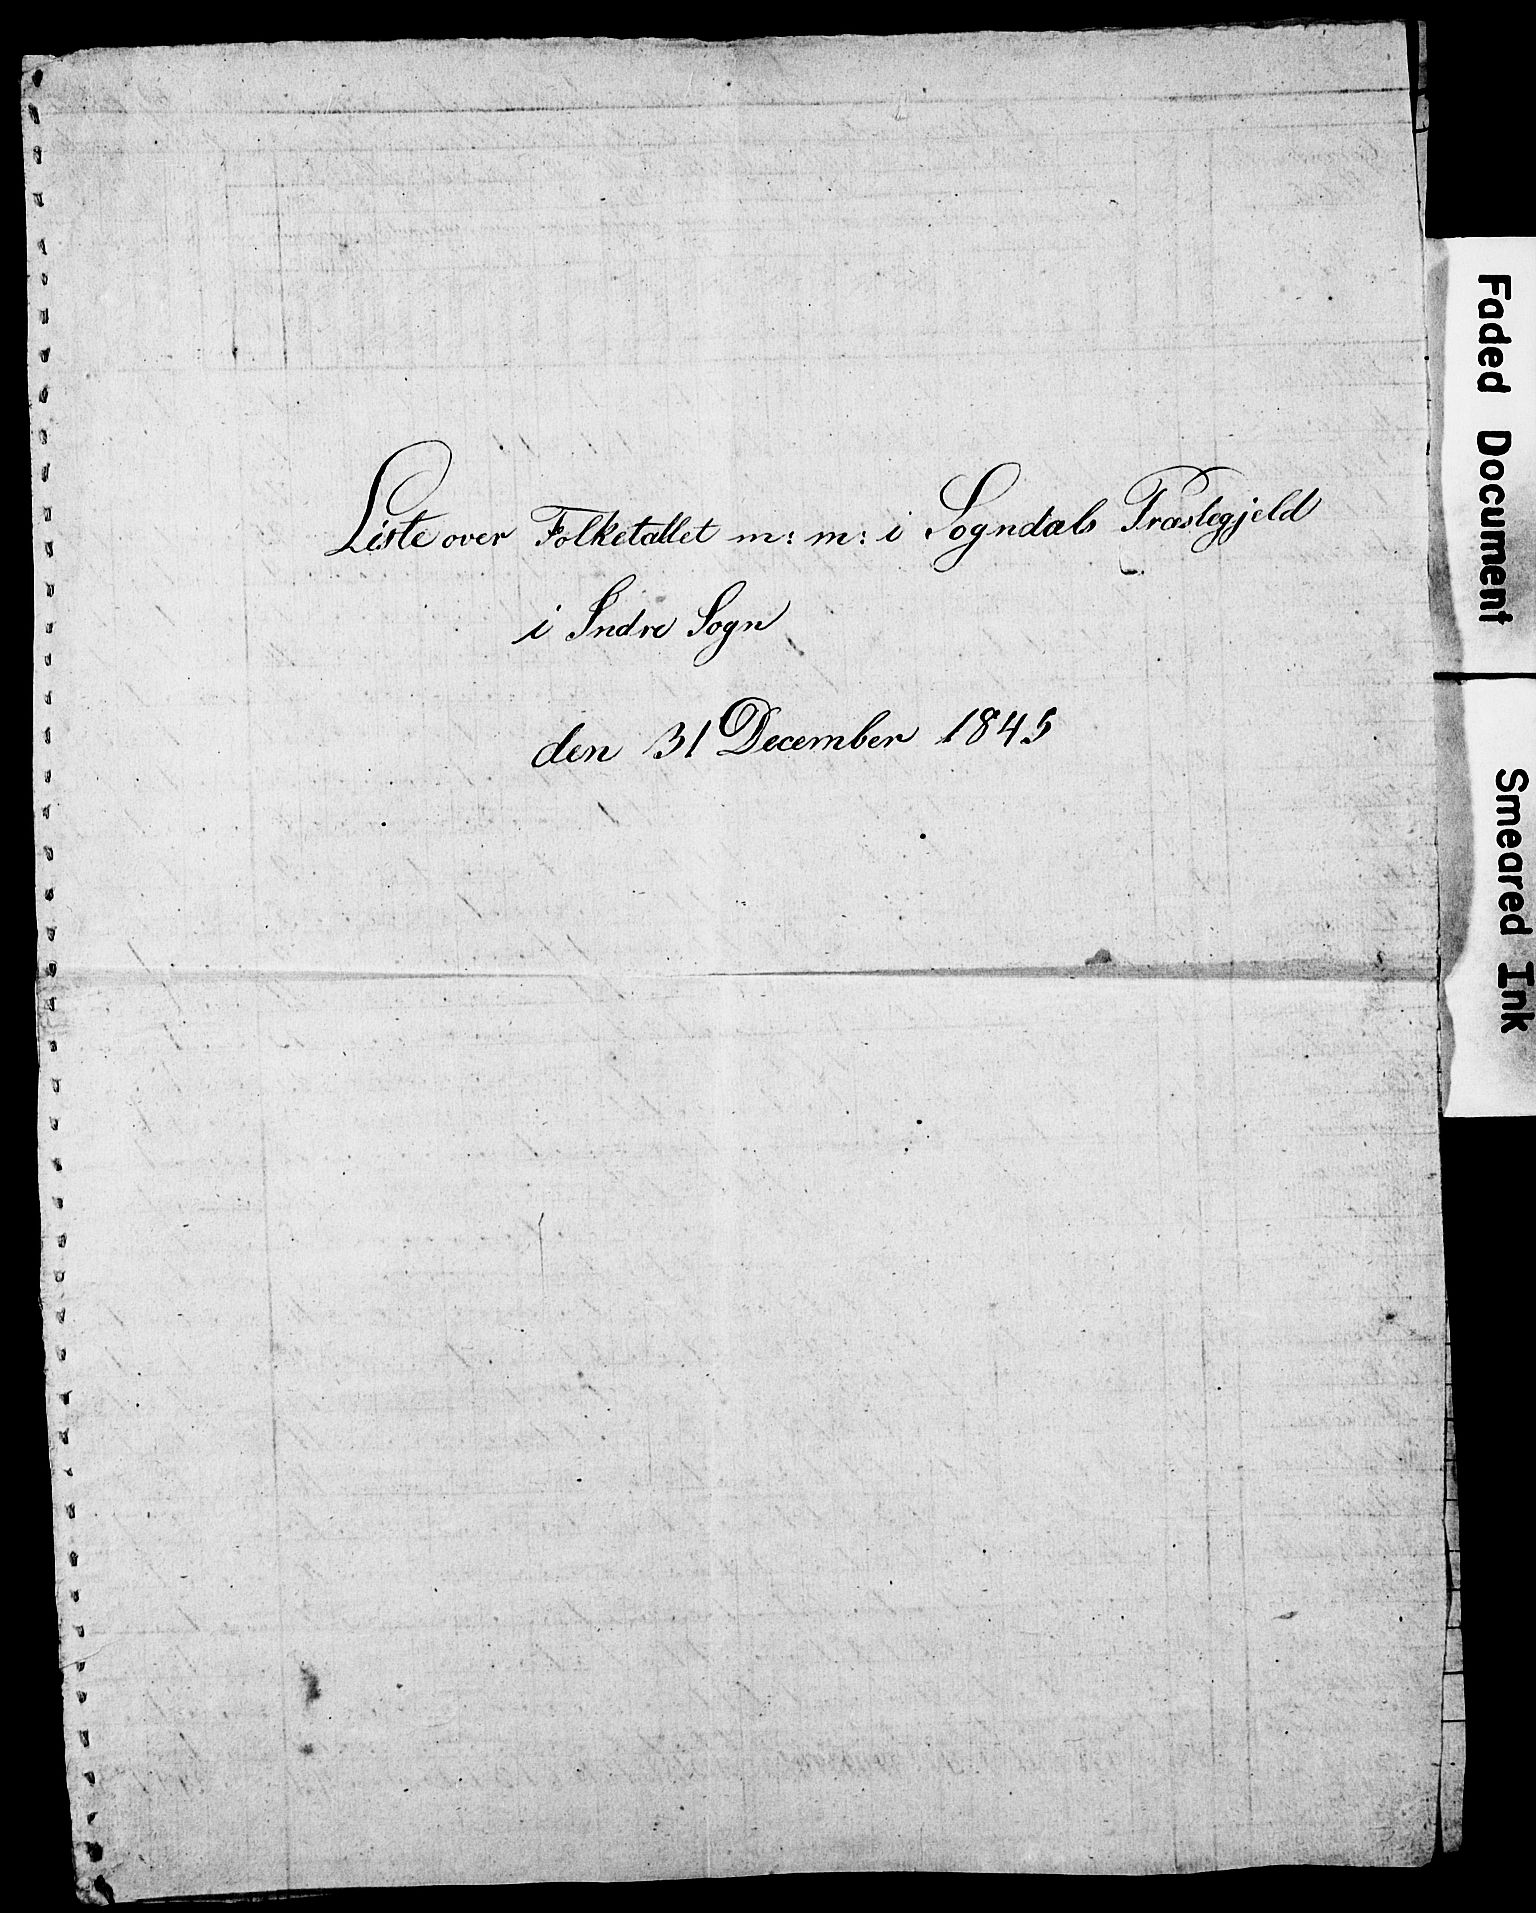 Liste over Folketallet m: m: i Sogndals Præstegjeld
i Indre Sogn
den 31 December 1845
Faded Document
Smeared Ink